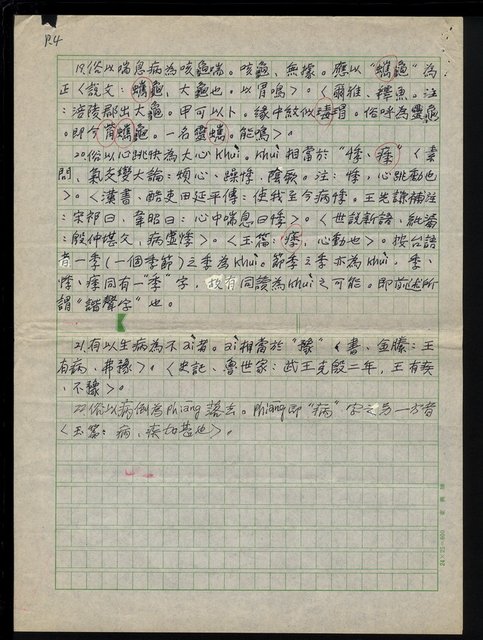 P.4
19.俗以喘息病為咳龜喘。咳龜、無據。應以"蠵龜"為
正〈說文：蠵龜、大龜也。以胃鳴〉。〈爾雅、釋魚。注
：涪陵郡出大龜。甲可以卜。緣中紋似瑇瑁。俗呼為靈龜
。即今觜蠵龜。一名靈蠵。能鳴〉。
20.俗以心跳快為大心khuì。khuì相當於"悸、痵"〈素
問、氣交變大論：煩心、躁悸、陰厥。注：悸，心跳動也
〉。〈漢書、酷吏田延年傳：使我至今病悸。王先謙補注
：宋祁曰、韋昭曰：心中喘息曰悸〉。〈世說新語、紕漏
：殷仲堪父，病虛悸〉。〈玉篇：痵，心動也〉。按台語
者一季(一個季節)之季為khuì。節季之季亦為khuì，季、
悸、痵同有一"季"字，故有同讀為khuì之可能。即前述所
謂"諧聲字"也。
21.有以生病為不zì者。zì相當於"豫"〈書、金縢：王
有病、弗豫〉。〈史記、魯世家：武王克殷二年，王有疾
、不豫〉。
22.俗以病倒為phiāng落去。phiāng即"病"字之另一方音
〈玉篇：病、疾加甚也〉。
24×25=600